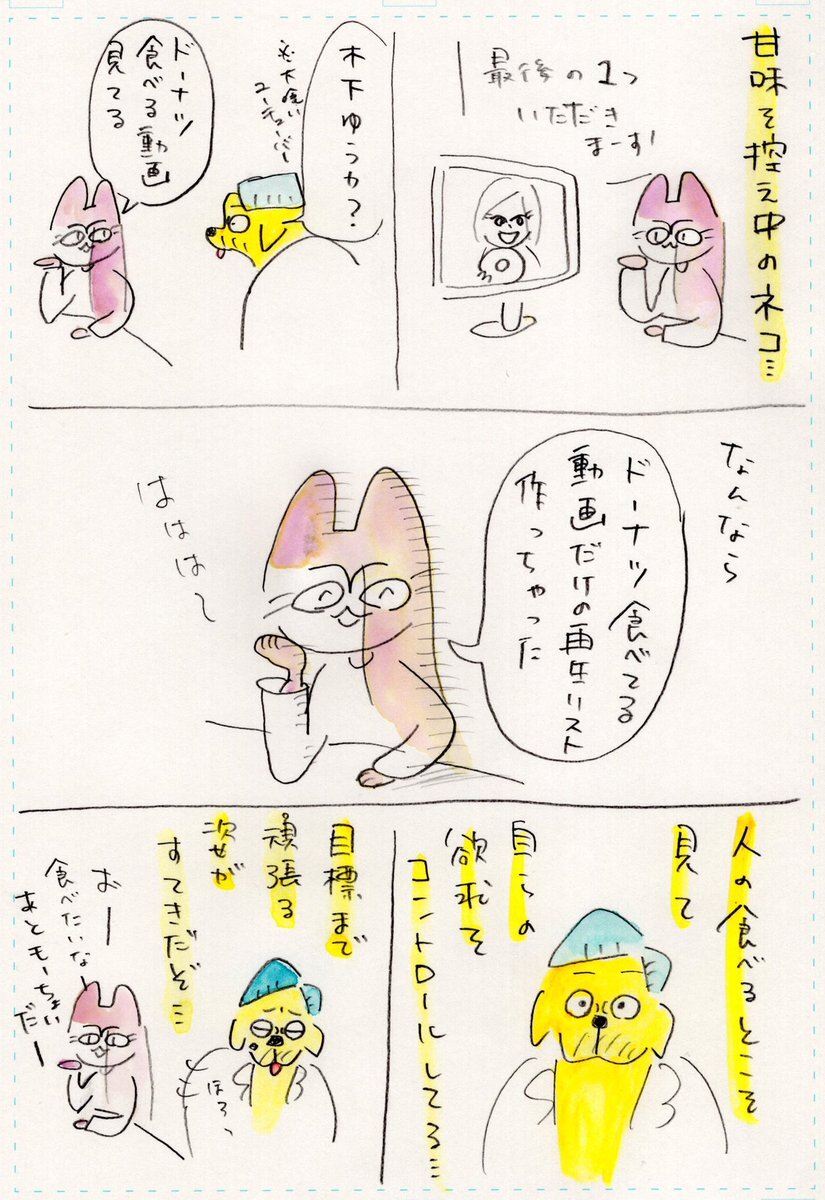 甘味を控え中のネコ…
最後の1つ
いただき
まーす!
木下ゆうか?
※大食い
ユーチューバー
ドーナツ
食べる動画
見てる
なんなら
ドーナツ食べてる
動画だけの再生リスト
作っちゃった
ははは〜
人の食べるとこを
見て
自らの
欲求を
コントロールしてる…
目標まで
頑張る
姿が
すてきだぞ…
ほろ、
おー
食べたいなー
あともーちょい
だー